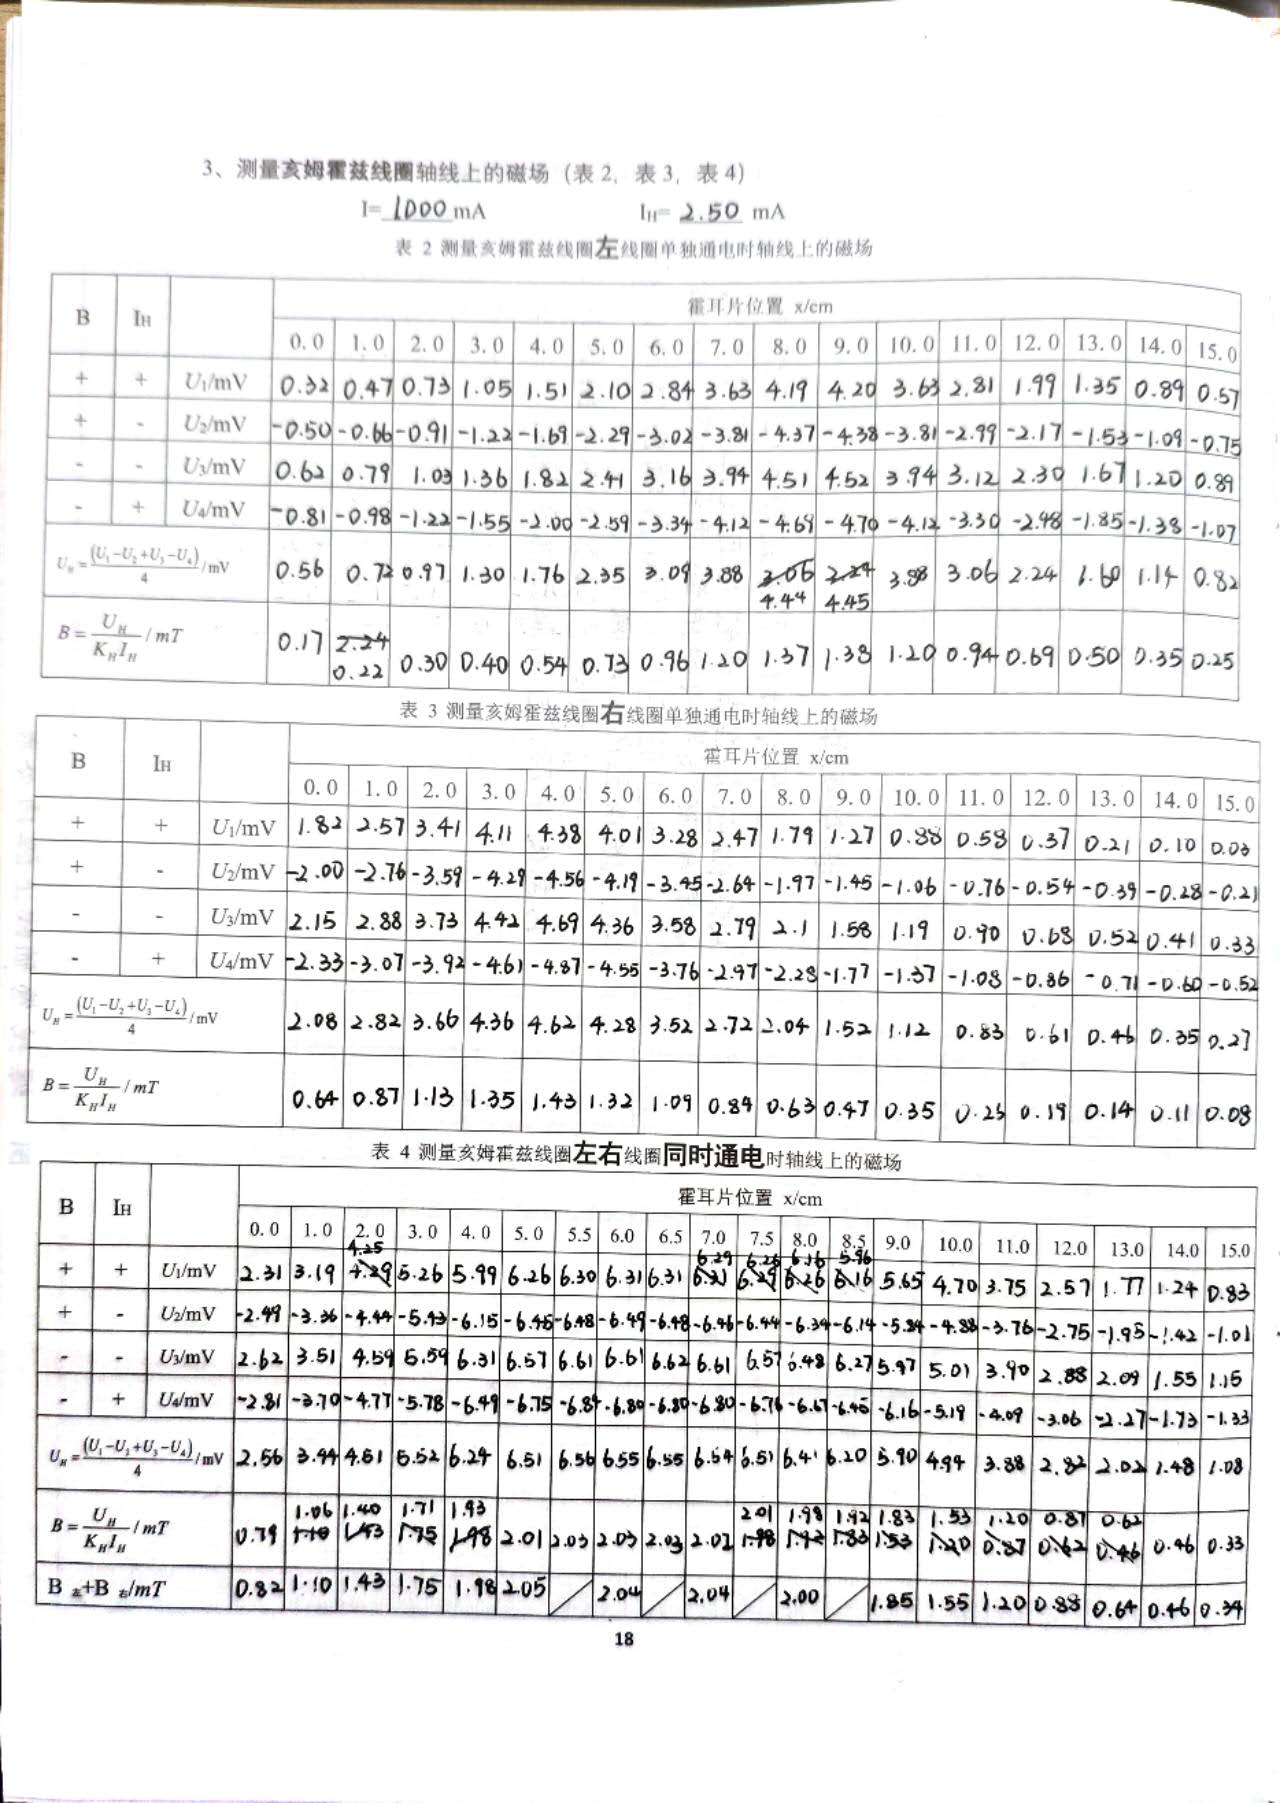 3、测量亥姆霍兹线圈轴线上的磁场（表 2，表 3，表 4）
I= 1000 mA  I_H= 2.50 mA
表 2 测量亥姆霍兹线圈左线圈单独通电时轴线上的磁场
B I_H 霍耳片位置 x/cm
0.0 1.0 2.0 3.0 4.0 5.0 6.0 7.0 8.0 9.0 10.0 11.0 12.0 13.0 14.0 15.0
+ + U₁/mV 0.32 0.47 0.73 1.05 1.51 2.10 2.84 3.63 4.19 4.20 3.63 2.81 1.99 1.35 0.89 0.57
+ - U₂/mV -0.50 -0.66 -0.91 -1.22 -1.69 -2.29 -3.02 -3.81 -4.37 -4.38 -3.81 -2.99 -2.17 -1.53 -1.09 -0.75
- - U₃/mV 0.62 0.79 1.03 1.36 1.82 2.41 3.16 3.94 4.51 4.52 3.94 3.12 2.30 1.67 1.20 0.89
- + U₄/mV -0.81 -0.98 -1.22 -1.55 -2.00 -2.59 -3.34 -4.12 -4.69 -4.70 -4.12 -3.30 -2.48 -1.85 -1.38 -1.07
U_H=(U₁-U₂+U₃-U₄)/4 /mV 0.56 0.72 0.97 1.30 1.76 2.35 3.09 3.88 3.06 2.24 3.88 3.06 2.24 1.60 1.14 0.82
4.44 4.45
B=U_H/(K_H I_H) /mT 0.17 2.24 0.30 0.40 0.54 0.73 0.96 1.20 1.37 1.38 1.20 0.94 0.69 0.50 0.35 0.25
0.22
表 3 测量亥姆霍兹线圈右线圈单独通电时轴线上的磁场
B I_H 霍耳片位置 x/cm
0.0 1.0 2.0 3.0 4.0 5.0 6.0 7.0 8.0 9.0 10.0 11.0 12.0 13.0 14.0 15.0
+ + U₁/mV 1.82 2.57 3.41 4.11 4.38 4.01 3.28 2.47 1.79 1.27 0.88 0.58 0.37 0.21 0.10 0.03
+ - U₂/mV -2.00 -2.76 -3.59 -4.29 -4.56 -4.19 -3.45 -2.64 -1.97 -1.45 -1.06 -0.76 -0.54 -0.39 -0.28 -0.21
- - U₃/mV 2.15 2.88 3.73 4.42 4.69 4.36 3.58 2.79 2.1 1.58 1.19 0.90 0.68 0.52 0.41 0.33
- + U₄/mV -2.33 -3.07 -3.92 -4.61 -4.87 -4.55 -3.76 -2.97 -2.28 -1.77 -1.37 -1.08 -0.86 -0.71 -0.60 -0.52
U_H=(U₁-U₂+U₃-U₄)/4 /mV 2.08 2.82 3.66 4.36 4.62 4.28 3.52 2.72 2.04 1.52 1.12 0.83 0.61 0.46 0.35 0.27
B=U_H/(K_H I_H) /mT 0.64 0.87 1.13 1.35 1.43 1.32 1.09 0.84 0.63 0.47 0.35 0.25 0.19 0.14 0.11 0.08
表 4 测量亥姆霍兹线圈左右线圈同时通电时轴线上的磁场
B I_H 霍耳片位置 x/cm
0.0 1.0 2.0 3.0 4.0 5.0 5.5 6.0 6.5 7.0 7.5 8.0 8.5 9.0 10.0 11.0 12.0 13.0 14.0 15.0
4.25 6.29 6.26 6.16 5.96
+ + U₁/mV 2.31 3.19 4.29 5.26 5.99 6.26 6.30 6.31 6.31 6.31 6.29 6.26 6.16 5.65 4.70 3.75 2.57 1.77 1.24 0.83
+ - U₂/mV -2.49 -3.36 -4.44 -5.43 -6.15 -6.45 -6.48 -6.49 -6.48 -6.46 -6.44 -6.34 -6.14 -5.84 -4.88 -3.76 -2.75 -1.95 -1.42 -1.01
- - U₃/mV 2.62 3.51 4.59 5.59 6.31 6.57 6.61 6.61 6.62 6.61 6.57 6.48 6.27 5.97 5.01 3.90 2.88 2.09 1.55 1.15
- + U₄/mV -2.81 -3.70 -4.77 -5.78 -6.49 -6.75 -6.84 -6.80 -6.80 -6.80 -6.76 -6.67 -6.45 -6.16 -5.19 -4.09 -3.06 -2.27 -1.73 -1.33
U_H=(U₁-U₂+U₃-U₄)/4 /mV 2.56 3.44 4.51 5.52 6.24 6.51 6.56 6.55 6.55 6.54 6.51 6.41 6.20 5.90 4.94 3.88 2.82 2.02 1.48 1.08
1.06 1.40 1.71 1.93 2.01 1.98 1.92 1.83 1.53 1.20 0.87 0.62
B=U_H/(K_H I_H) /mT 0.79 1.10 1.43 1.75 1.98 2.01 2.03 2.03 2.03 2.02 1.98 1.92 1.83 1.53 1.20 0.87 0.62 0.46 0.46 0.33
B左+B右/mT 0.82 1.10 1.43 1.75 1.98 2.05 / 2.04 / 2.04 / 2.00 / 1.85 1.55 1.20 0.88 0.64 0.46 0.34
18